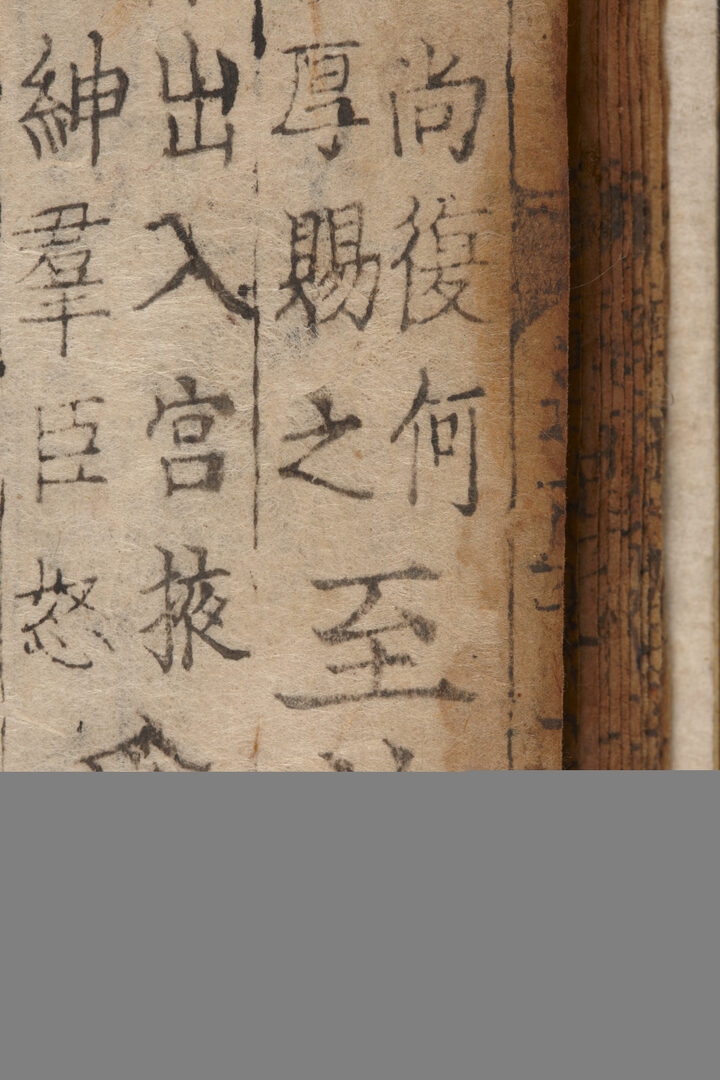 尚復何
厚賜之
至
出入宮掖
紳羣臣怒